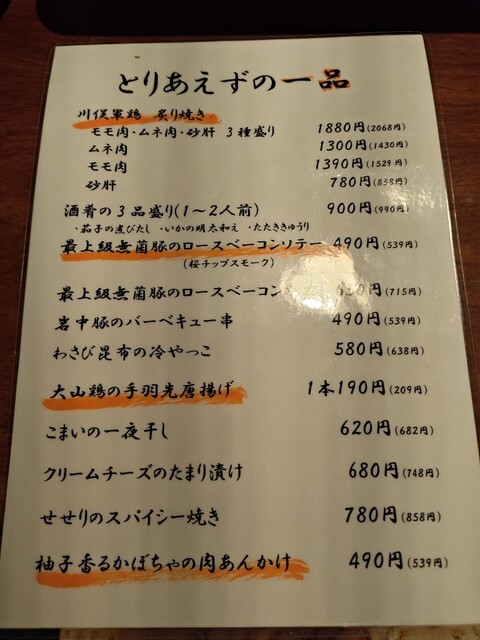 とりあえずの一品
川俣軍鶏 炙り焼き
モモ肉・ムネ肉・砂肝 3種盛り 1880円(2068円)
ムネ肉 1300円(1430円)
モモ肉 1390円(1529円)
砂肝 780円(858円)
酒肴の3品盛り(1〜2人前) 900円(990円)
・茄子の煮びたし ・いかの明太和え ・たたききゅうり
最上級無菌豚のロースベーコンソテー 490円(539円)
(桜チップスモーク)
最上級無菌豚のロースベーコン (715円)
岩中豚のバーベキュー串 490円(539円)
わさび昆布の冷やっこ 580円(638円)
大山鶏の手羽先唐揚げ 1本190円(209円)
こまいの一夜干し 620円(682円)
クリームチーズのたまり漬け 680円(748円)
せせりのスパイシー焼き 780円(858円)
柚子香るかぼちゃの肉あんかけ 490円(539円)